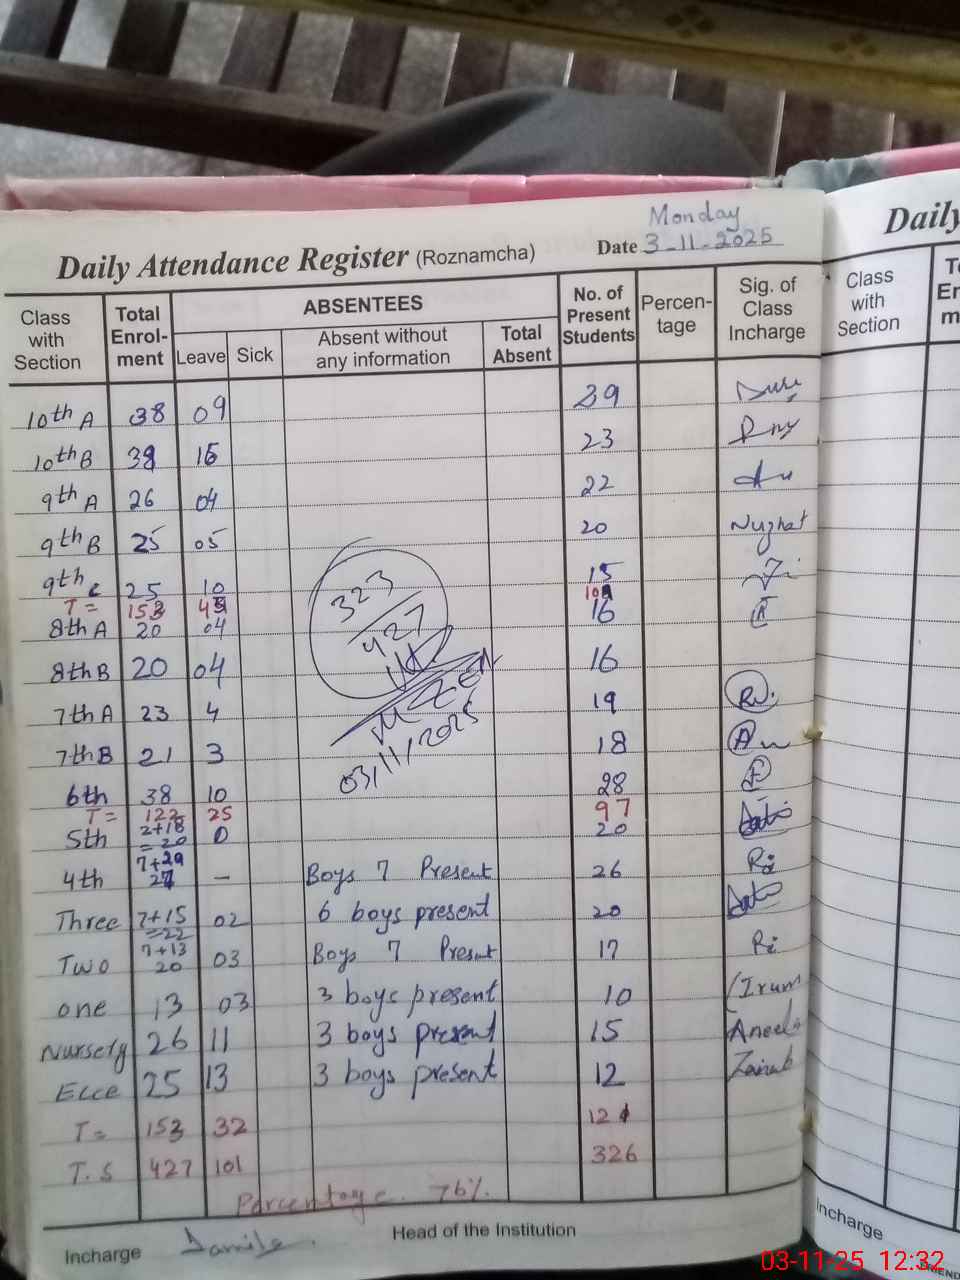 Monday
Daily Attendance Register (Roznamcha) Date 3-11-2025
Class with Section Total Enrol-ment ABSENTEES No. of Present Students Percen-tage Sig. of Class Incharge
Leave Sick Absent without any information Total Absent
10th A 38 09 29
10th B 38 15 23
9th A 26 04 22
9th B 25 05 20 Nuzhat
9th C 25 10 15
T = 152 43 109
8th A 20 04 16
8th B 20 04 16
7th A 23 4 19
7th B 21 3 18
6th 38 10 28
T = 122 25 97
5th 2+18 = 20 0 20
4th 7+ 27 — Boys 7 Present 26
Three 7+15 =22 02 6 boys present 20
Two 7+13 20 03 Boys 7 Present 17
one 13 03 3 boys present 10 Irum
Nursery 26 11 3 boys present 15 Aneela
Ecce 25 13 3 boys present 12 Zainab
T = 153 32 121
T.S 427 101 326
Percentage. 76%.
323
427
03/11/2025
Incharge Head of the Institution
Daily
Class with Section
Incharge
03-11-25 12:32